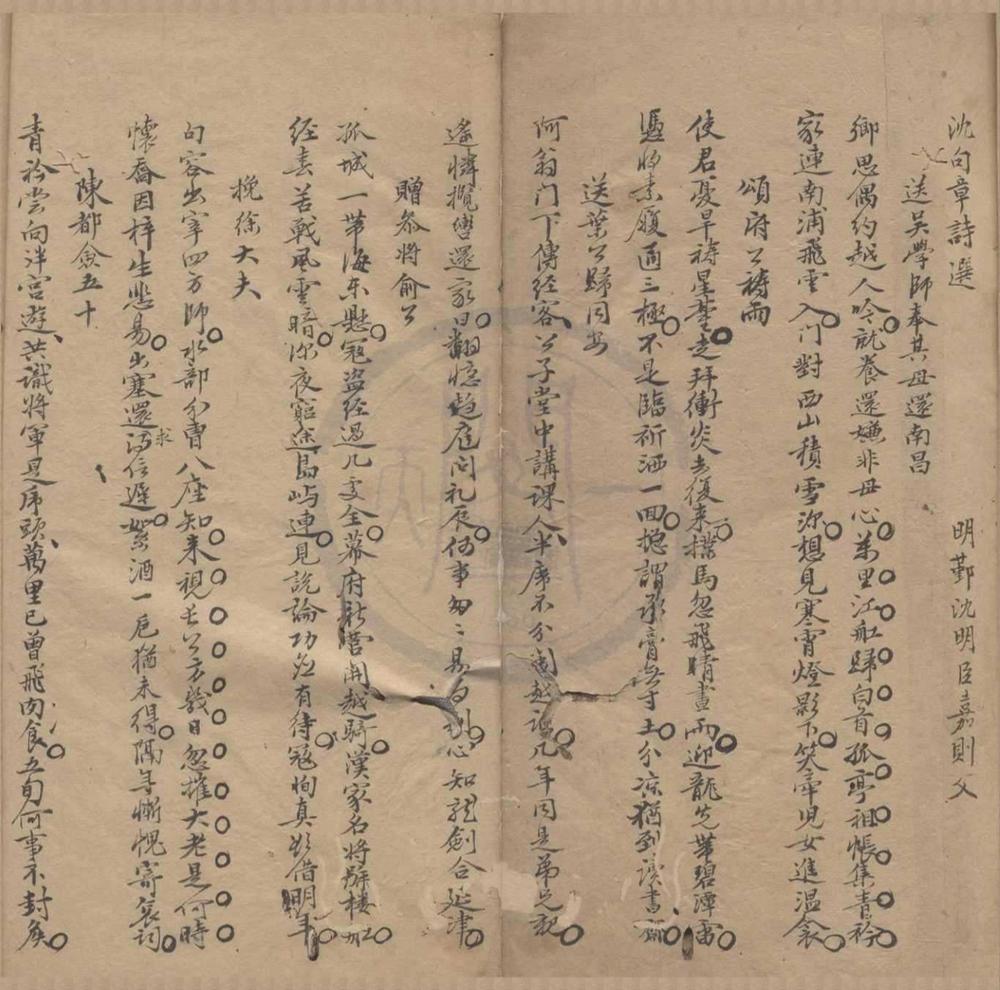 沈句章詩選
明鄞沈明臣嘉則父
送吳學師奉其母還南昌
鄉思偶約越人吟就養還嫌非母心萬里江舡歸白首孤亭祖帳集青衿
家連南浦飛雲入门對西山積雪深想見寒宵燈影下笑牽児女進溫衾
頌府公禱雨
使君憂旱禱星壇走拜衝炎去復来擁馬忽飛晴晝雨迎龍先華碧潭雷
憑将素履通三極不是臨祈洒一回摠謂承膏寸土分涼猶到讀書
送葉公歸同安
何翁门下傳經客公子堂中講課人半席不分越几年同是弟兄親
遙憐攬轡還家日翻憶趋庭问礼辰何事匆〻易别心知龍劍合延津
贈叅将俞公
孤城一带海东懸冦盗经過几處全幕府新营開越騎漢家名将辭楼船
经春苦戰風雲暗深夜窮途島屿連見説論功应有待冦恂真欲借明年
挽徐大夫
句容出宰四方師水部分曹八座知来視长公方幾日忽摧大老是何時
懷喬因梓生悲易出塞還求信遲絮酒一卮猶未得隔年慚愧寄哀詞
陳都僉五十
青衿嘗向泮宮遊共識将軍是虎頭萬里已曾飛肉食五旬何事不封矦